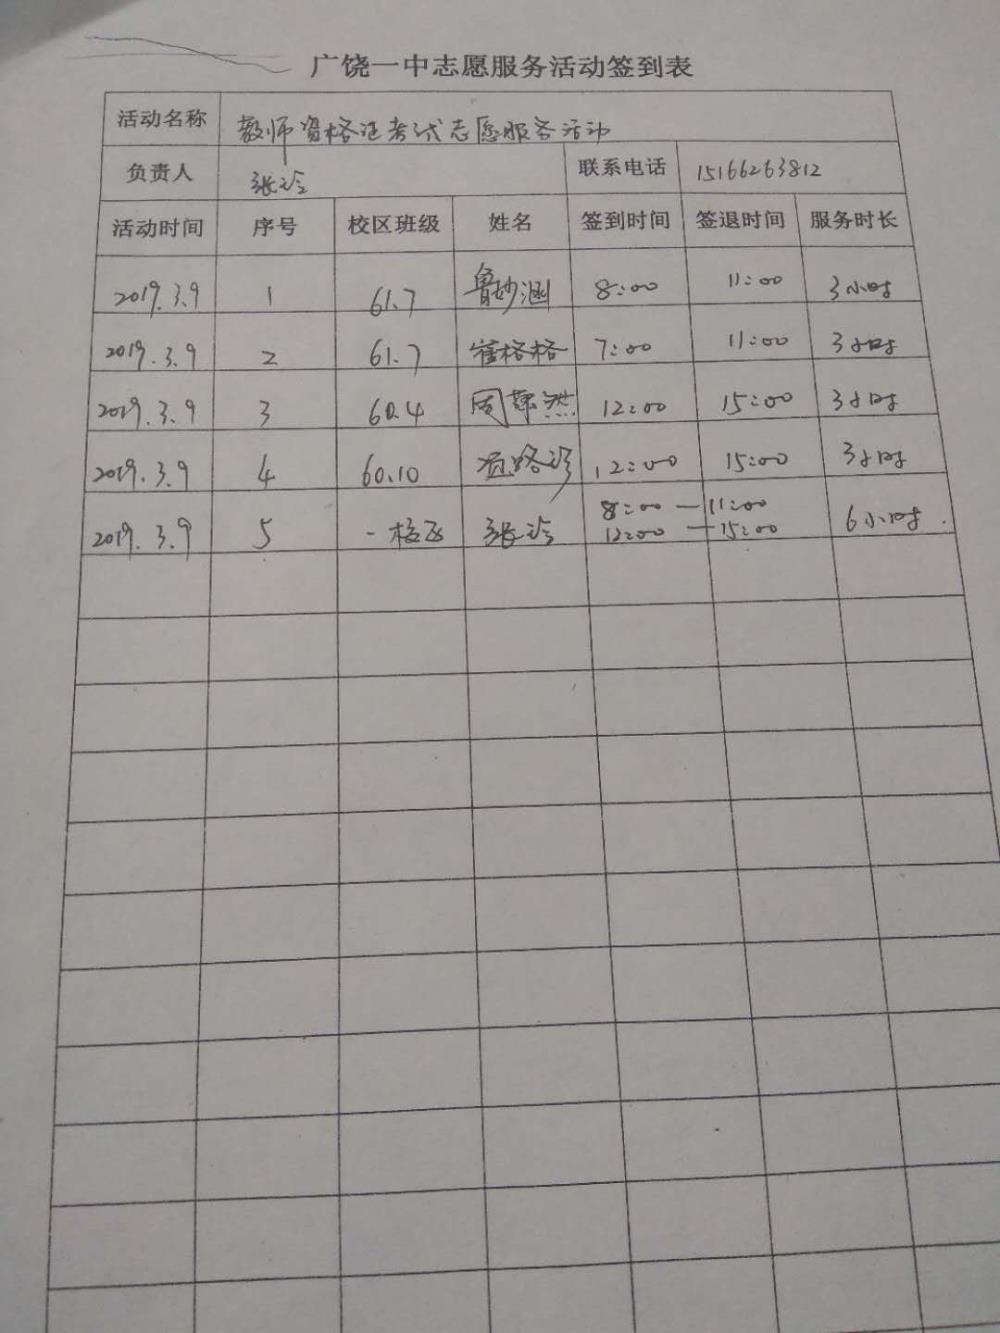 广饶一中志愿服务活动签到表
活动名称 教师资格证考试志愿服务活动
负责人 张泠 联系电话 15166263812
活动时间 序号 校区班级 姓名 签到时间 签退时间 服务时长
2019.3.9 1 61.7 鲁妙涵 8:00 11:00 3小时
2019.3.9 2 61.7 崔格格 7:00 11:00 3小时
2019.3.9 3 60.4 周 12:00 15:00 3小时
2019.3.9 4 60.10 12:00 15:00 3小时
2019.3.9 5 一校区 张泠 8:00 — 11:00 6小时.
12:00 — 15:00